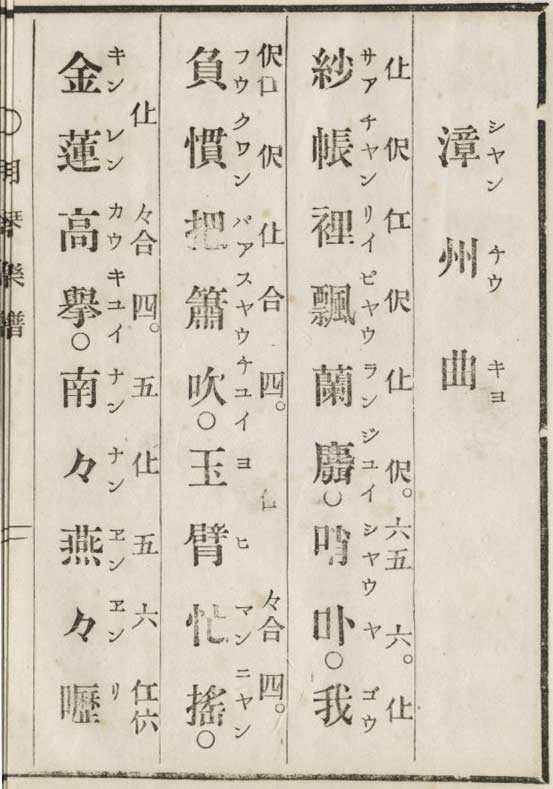 漳州曲
シヤン チウ キヨ
紗帳裡飄蘭麝○哨卟○我
サア チヤン リイ ピヤウ ラン ジユイ シヤウ ヤ ゴウ
仩 伬 仜 伬 仩 伬。 六五 六。 仩
負慣把簫吹○玉臂忙搖○
フウ クワン パア スヤウ チユイ ヨ ヒ マン ニヤン
伬 仩 合 四。 々合 四。
金蓮高擧○南々燕々嚦
キン レン カウ キユイ ナン ナン ヱン ヱン リ
仩 々合 四。 五 仩 五 六 仜伬
明琴樂譜
二